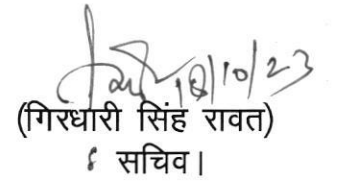 18/10/23
(गिरधारी सिंह रावत)
सचिव।